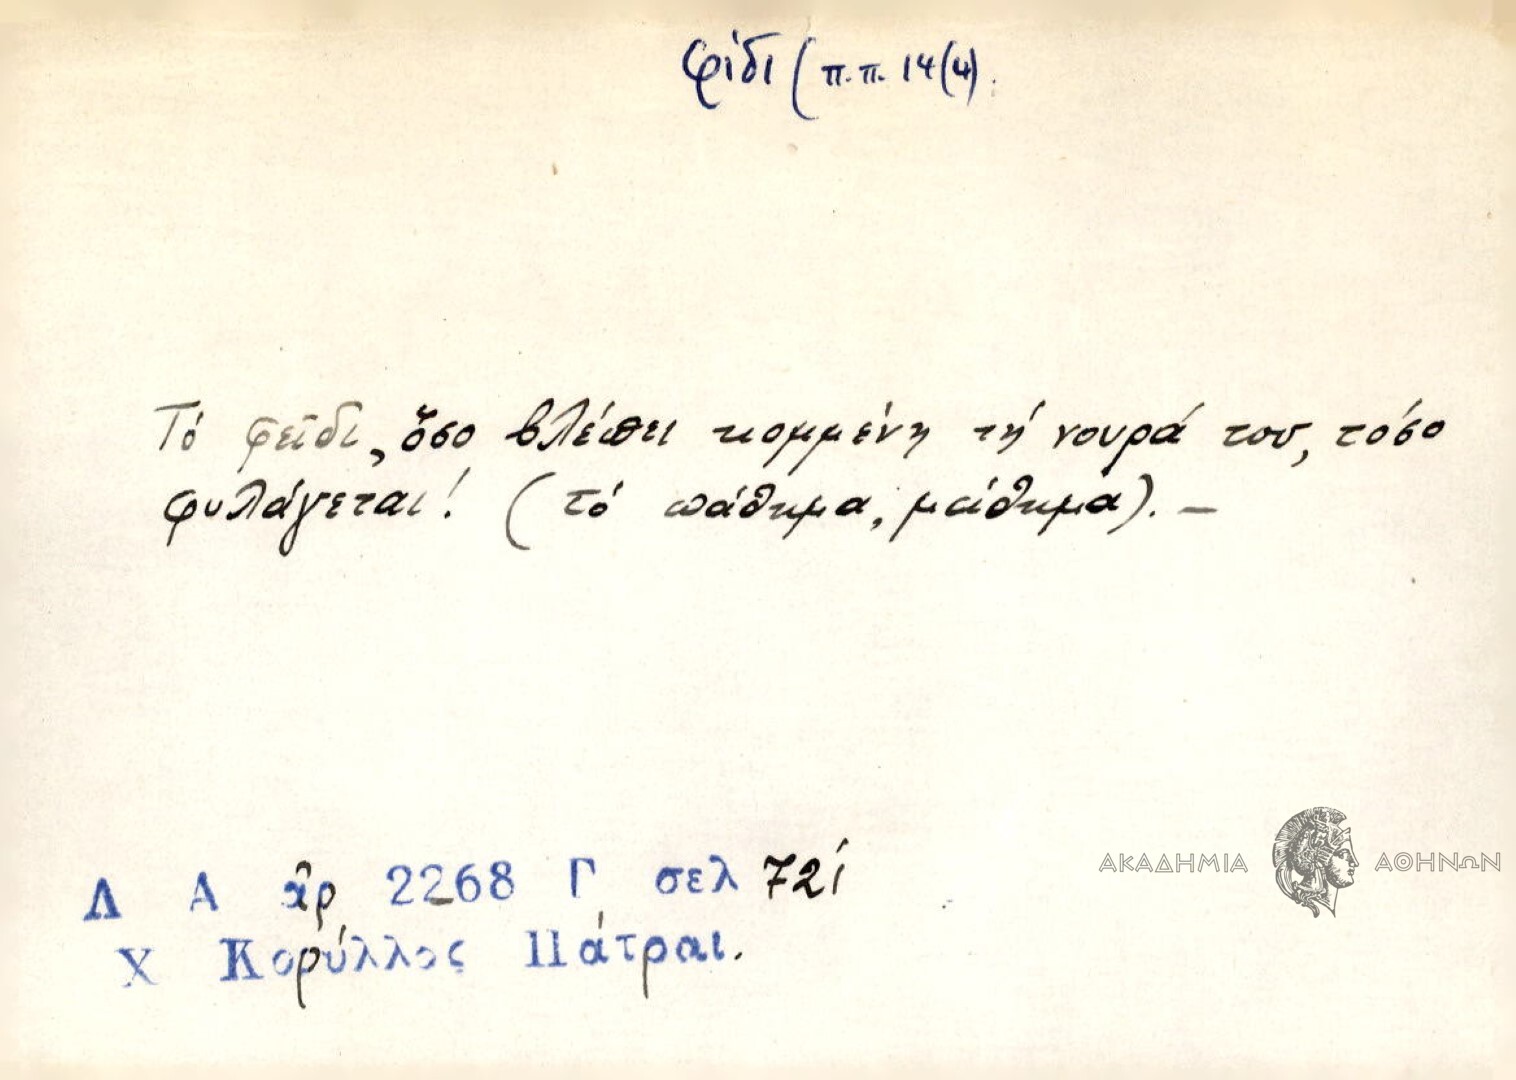 φίδι (π.π. 14(4).
Τό φεῖδι, ὅσο βλέπει κομμένη τή νουρά του, τόσο
φυλάγεται! (τό πάθημα, μάθημα). –
Λ Α ἀρ 2268 Γ σελ 721
Χ Κορύλλος Πάτραι.
ΑΚΑΔΗΜΙΑ ΑΘΗΝΩΝ